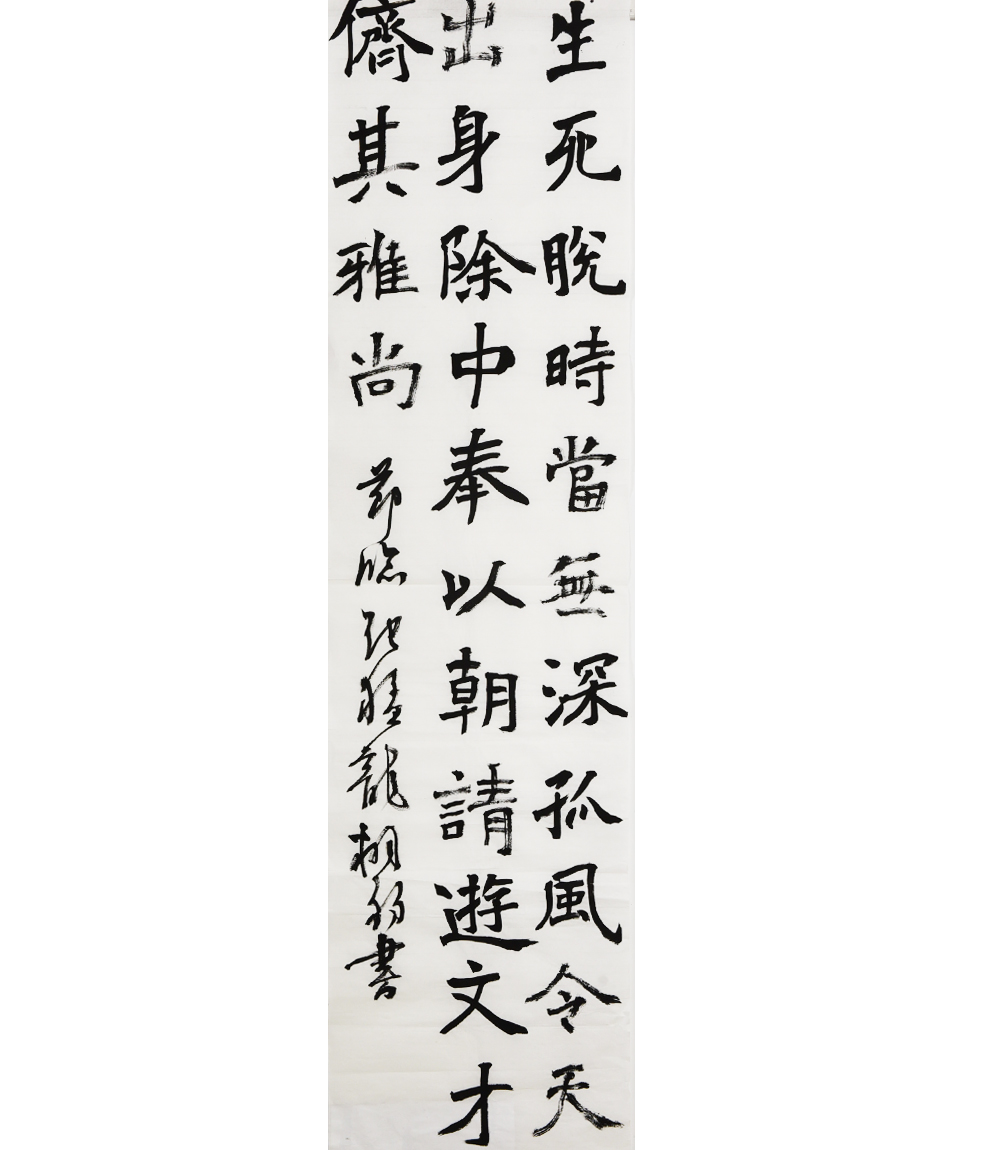 生死脫時當無深孤風令天
出身除中奉以朝請遊文才
儕其雅尚 節臨張猛龍 書